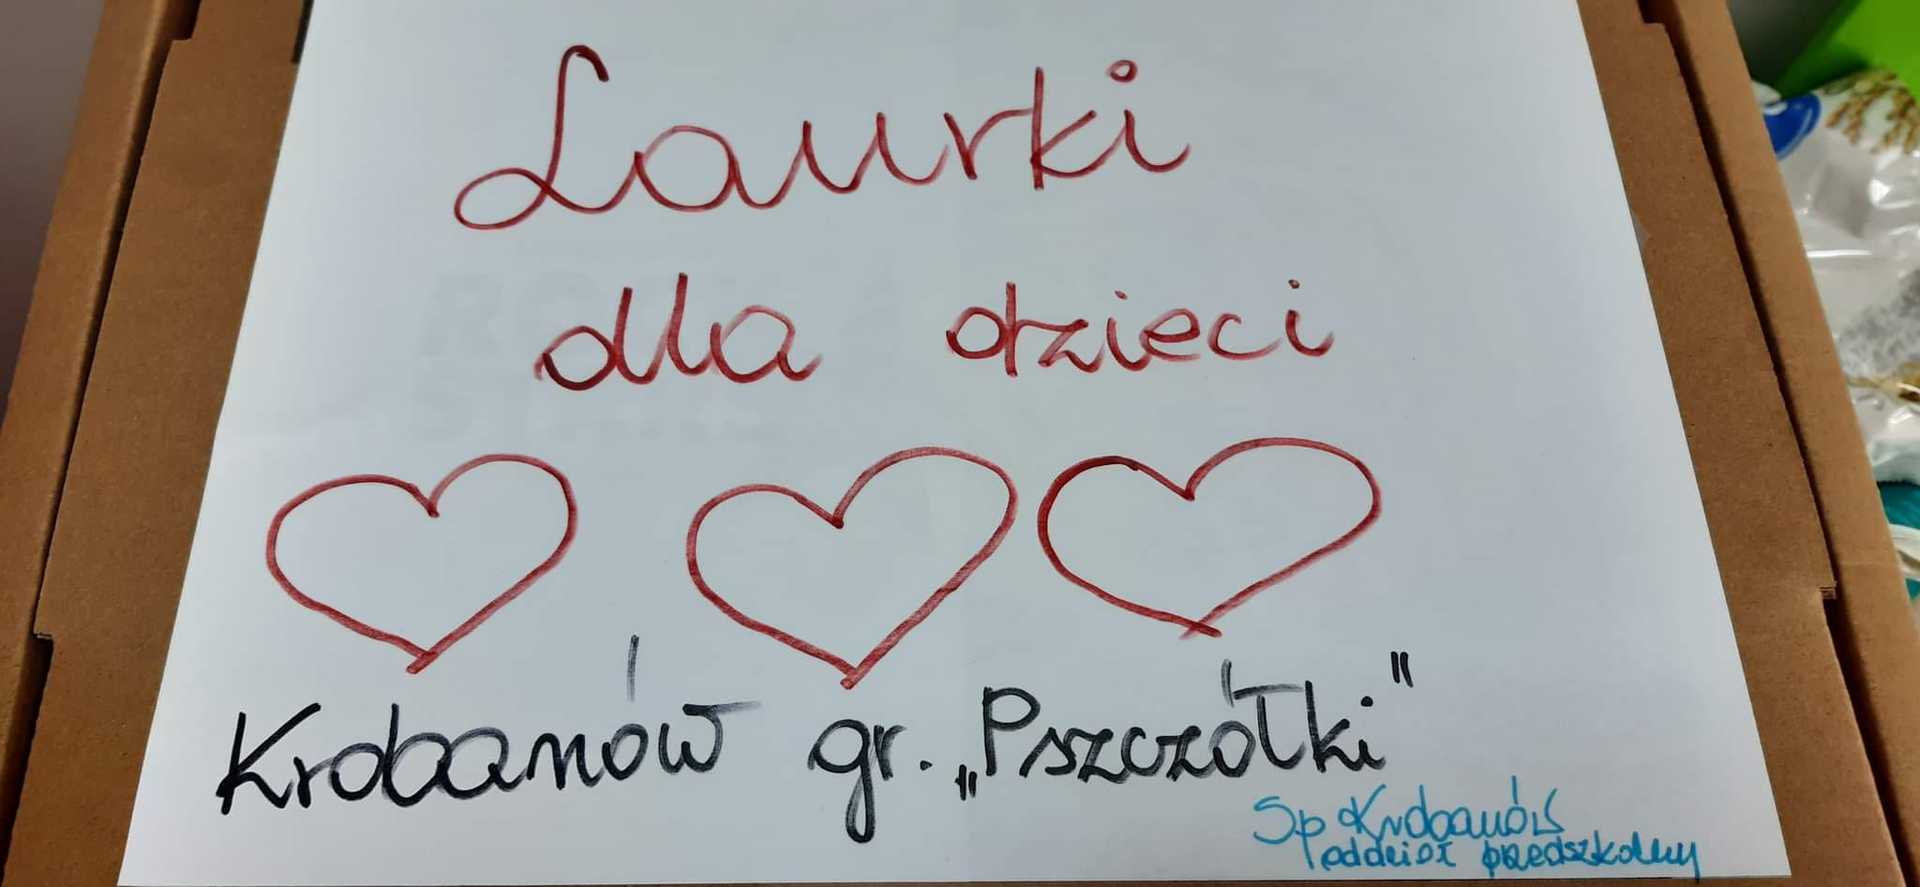 Laurki
dla dzieci
Krobanów gr. „Pszczółki"
Sp Krobanów
oddział przedszkolny